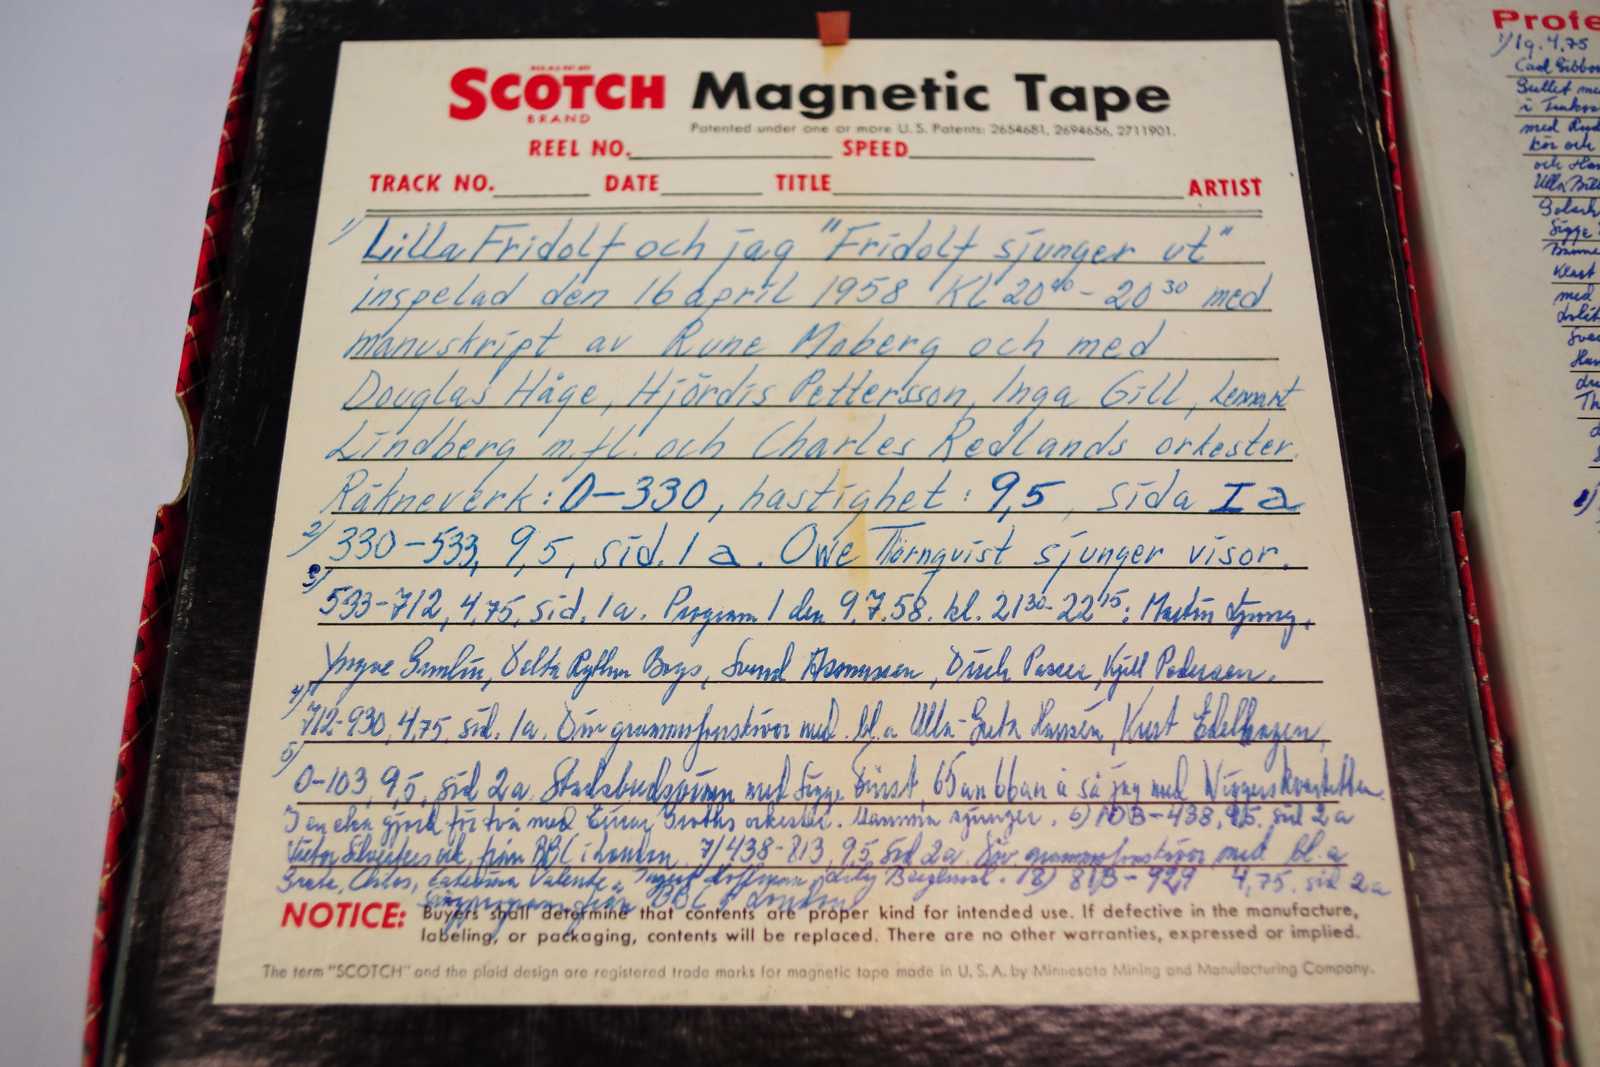 SCOTCH Magnetic Tape
BRAND
Patented under one or more U.S. Patents: 2654681, 2694656, 2711901.
REEL NO. SPEED
TRACK NO. DATE TITLE ARTIST
1) Lilla Fridolf och jag "Fridolf sjunger ut"
inspelad den 16 april 1958 Kl 20⁰⁰-20³⁰ med
manuskript av Rune Moberg och med
Douglas Håge, Hjördis Pettersson, Inga Gill, Lennart
Lindberg m.fl. och Charles Redlands orkester.
Räkneverk: 0-330, hastighet: 9,5, sida I a
2) 330-533, 9,5, sid. 1 a. Owe Törnqvist sjunger visor.
3) 533-712, 4,75, sid. 1a. Program 1 den 9.7.58. kl. 21³⁰-22¹⁵: Martin Ljung,
Yngve Gamlin, Delta Rythm Boys, Svend Asmussen, Dirch Passer, Kjell Pedersen.
4) 712-930, 4,75, sid. 1a. Div grammofonskivor med bl.a Ulla-Greta Hansén, Kurt Edelhagen,
5) 0-103, 9,5, sid 2a. Stadsbudsvisan med Sigge Fürst, å så jag med
I en eka gjord för två med Einar Groths orkester. Mamma sjunger. 6) 103-438, 9,5. sid 2a
från BBC i London. 7) 438-813, 9,5 sid 2a. Div grammofonskivor med bl.a
Caterina Valente, 8) 813-929 4,75. sid 2a
från BBC i London
NOTICE: Buyers shall determine that contents are proper kind for intended use. If defective in the manufacture,
labeling, or packaging, contents will be replaced. There are no other warranties, expressed or implied.
The term "SCOTCH" and the plaid design are registered trade marks for magnetic tape made in U.S.A. by Minnesota Mining and Manufacturing Company.
Profe
1) 19. 4,75
med
kör och
och
Ulla
Sigge
med